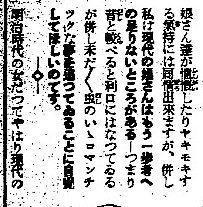 娘さん達が憤慨したりヤキモキす
る氣持には同情出來ますが、併し
私は現代の娘さんはもう一歩考へ
の足りないところがある——つまり
昔と較べると利口にはなつてゐる
が併し未だ〱虫のいゝロマンチ
ックな夢を追つてゐることに自覺
して欲しいのです。
明治時代の女だつてやはり現代の